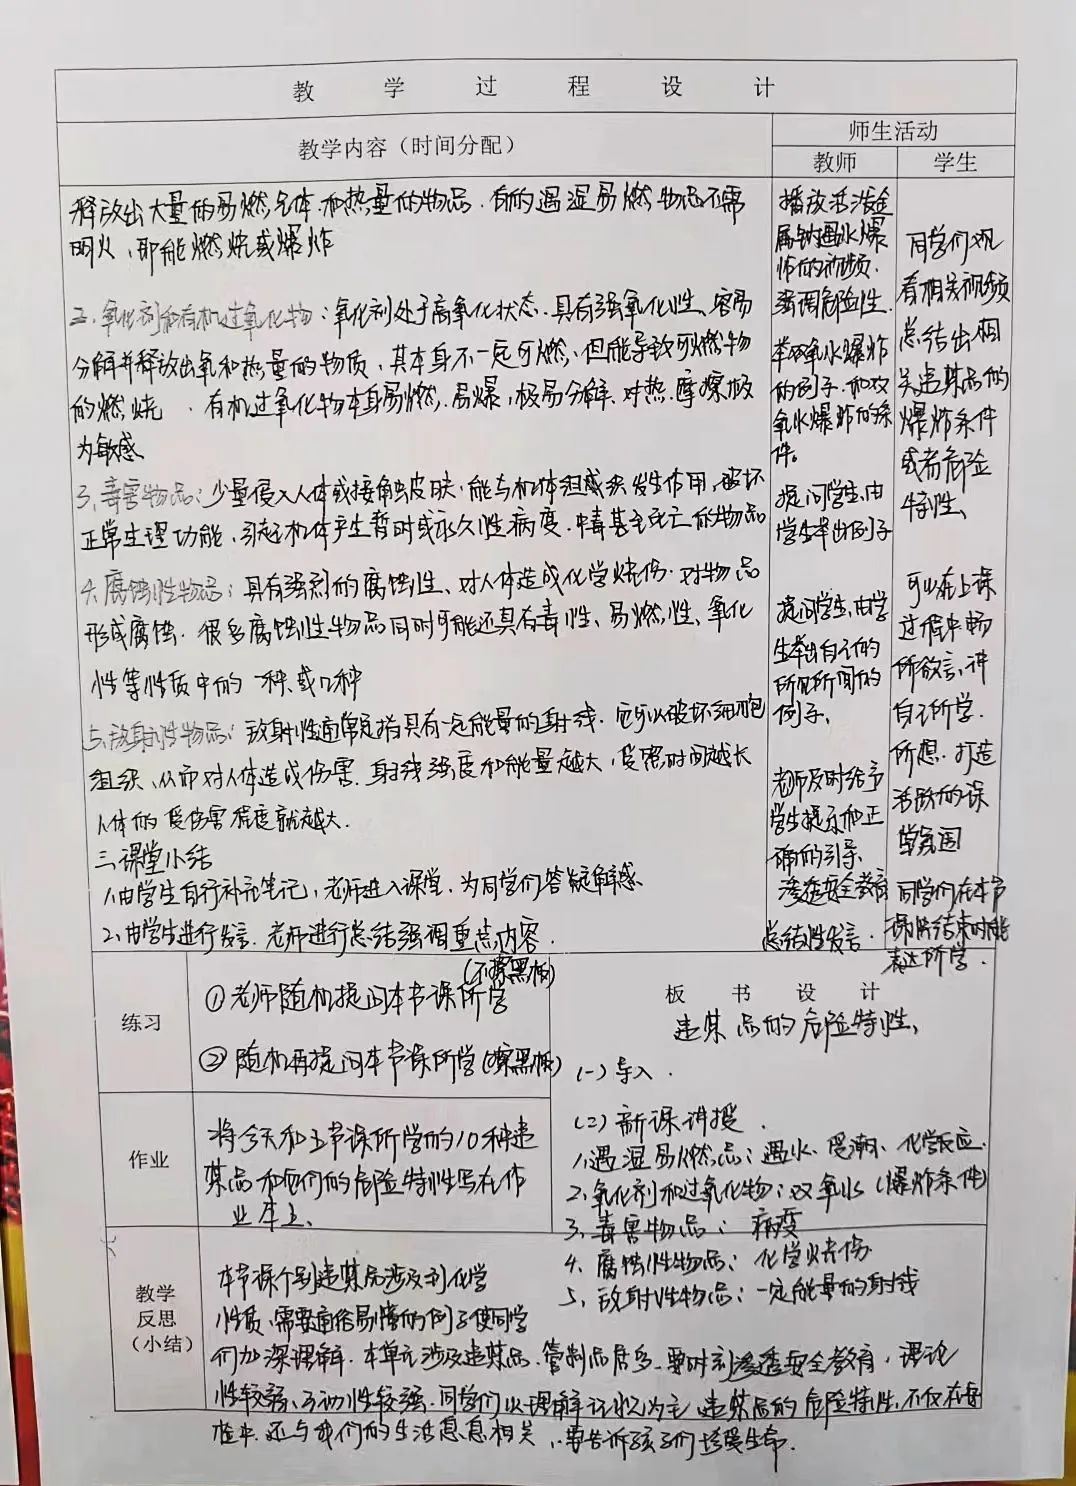 教学过程设计
教学内容（时间分配）
师生活动
教师
学生
释放出大量的易燃气体和热量的物品．有的遇湿易燃物品不需
明火、即能燃烧或爆炸
2、氧化剂和有机过氧化物：氧化剂处于高氧化状态．具有强氧化性、容易
分解并释放出氧和热量的物质，其本身不一定可燃、但能导致可燃物
的燃烧．有机过氧化物本身易燃．易爆，极易分解．对热．摩擦极
为敏感、
3、毒害物品：少量侵入人体或接触皮肤．能与机体组织发生作用，破坏
正常生理功能，引起机体产生暂时或永久性病变．中毒甚至死亡的物品
4.腐蚀性物品：具有强烈的腐蚀性、对人体造成化学烧伤．对物品
形成腐蚀．很多腐蚀性物品同时可能还具有毒性、易燃性、氧化
性等性质中的一种、或几种
5、放射性物品：放射性通常是指具有一定能量的射线．它可以破坏细胞
组织、从而对人体造成伤害．射线强度和能量越大，受照时间越长
人体的受伤害程度就越大．
三课堂小结
1、由学生自行补充笔记，老师进入课堂．为同学们答疑解惑
2、由学生进行发言．老师进行总结强调重点内容．
播放活泼金
属钠遇水爆
炸的视频．
强调危险性．
举双氧水爆炸
的例子．和双
氧水爆炸的条
件。
提问学生，由
学生举出例子
提问学生，由学
生举出自己的
所见所闻的
例子、
老师及时给予
学生提示和正
确的引导、
渗透安全教育
总结性发言．
同学们观
看相关视频
总结出相
关违禁品的
爆炸条件
或者危险
特性、
可以在上课
过程中畅
所欲言，讲
自己所学．
所想．打造
活跃的课
堂氛围
同学们在本节
课所结束时能
表达所学．
练习
(不擦黑板)
①老师随机提问本节课所学
②随机再提问本节课所学(擦黑板)
作业
将今天和上节课所学的10种违
禁品和他们的危险特性写在作
业本上、
板书设计
违禁品的危险特性、
(一)导入．
(二)新课讲授．
1、遇湿易燃品：遇水、受潮、化学反应．
2、氧化剂和过氧化物：双氧水(爆炸条件)
3、毒害物品：病变
4、腐蚀性物品：化学烧伤
5、放射性物品：一定能量的射线
教学
反思
（小结）
本节课个别违禁品涉及到化学
性质、需要通俗易懂的例子使同学
们加深理解．本单元涉及违禁品、管制品居多、要时刻渗透安全教育，理论
性较强、互动性较强．同学们以理解记忆为主 违禁品的危险特性，不仅在安
检中．还与我们的生活息息相关，要告诉孩子们珍爱生命．